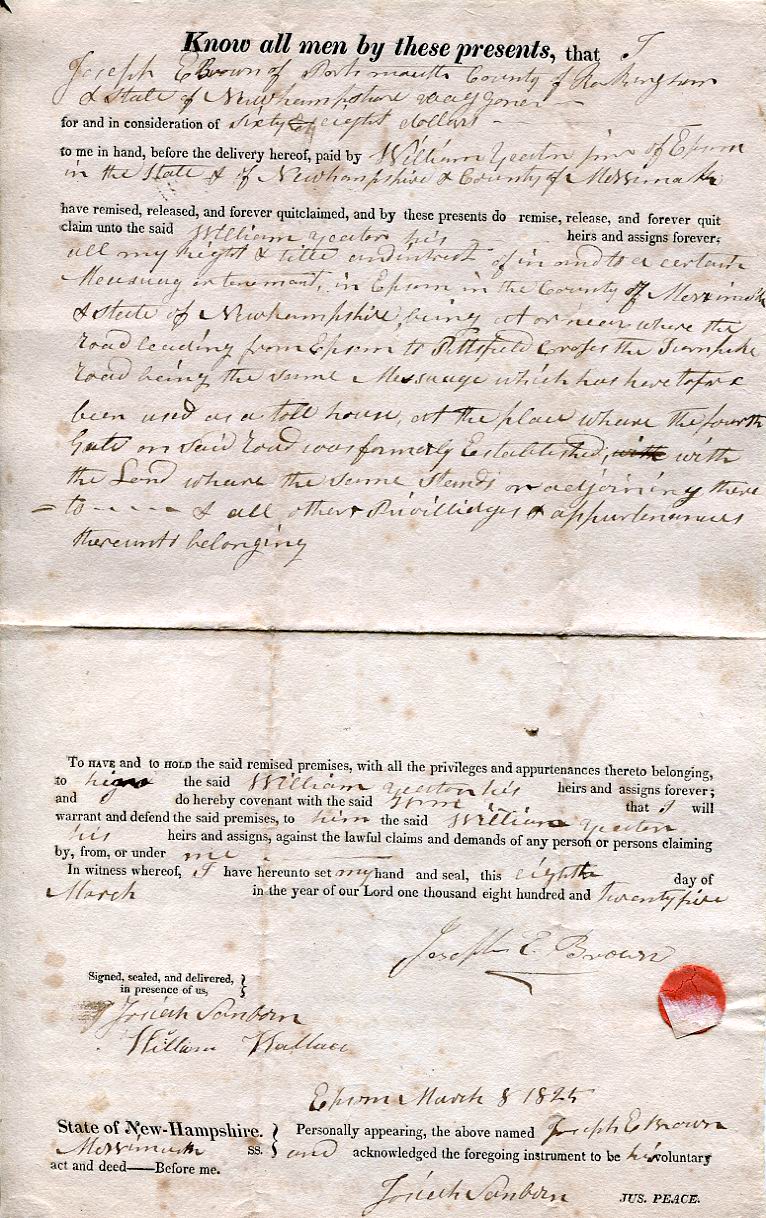 Know all men by these presents, that I
Joseph E Brown of Portsmouth County of Rockingham
& State of Newhampshire waggoner
for and in consideration of sixty eight dollars
to me in hand, before the delivery hereof, paid by William Yeaton junr of Epsom
in the State & of Newhampshire & County of Merrimack
have remised, released, and forever quitclaimed, and by these presents do remise, release, and forever quit
claim unto the said William Yeaton his heirs and assigns forever;
all my right & title and intrest of in and to a certain
Messuag or tenemant, in Epsom in the County of Merrimack
& State of Newhampshire, being at or near where the
Road leading from Epsom to Pittsfield Croses the Turnpike
Road being the same Messuage which has heretofore
been used as a toll house, at the place whare the fourth
Gate on said Road was formerly Established, with with
the Land whare the same Stands or adjoining there
= to - - - - & all other Privillidges & appurtenances
thereunto belonging
To HAVE and to HOLD the said remised premises, with all the privileges and appurtenances thereto belonging,
to the said William Yeaton his heirs and assigns forever;
and do hereby covenant with the said that I will
warrant and defend the said premises, to him the said William Yeaton
his heirs and assigns, against the lawful claims and demands of any person or persons claiming
by, from, or under me
In witness whereof, I have hereunto set my hand and seal, this eighth day of
March in the year of our Lord one thousand eight hundred and twenty five
Joseph E. Brown
Signed, sealed, and delivered,
in presence of us,
Josiah Sanborn
William Wallace
Epsom March 8 1825
State of New-Hampshire. Personally appearing, the above named Joseph E Brown
Merrimack ss. and acknowledged the foregoing instrument to be his voluntary
act and deed——Before me.
Josiah Sanborn JUS. PEACE.